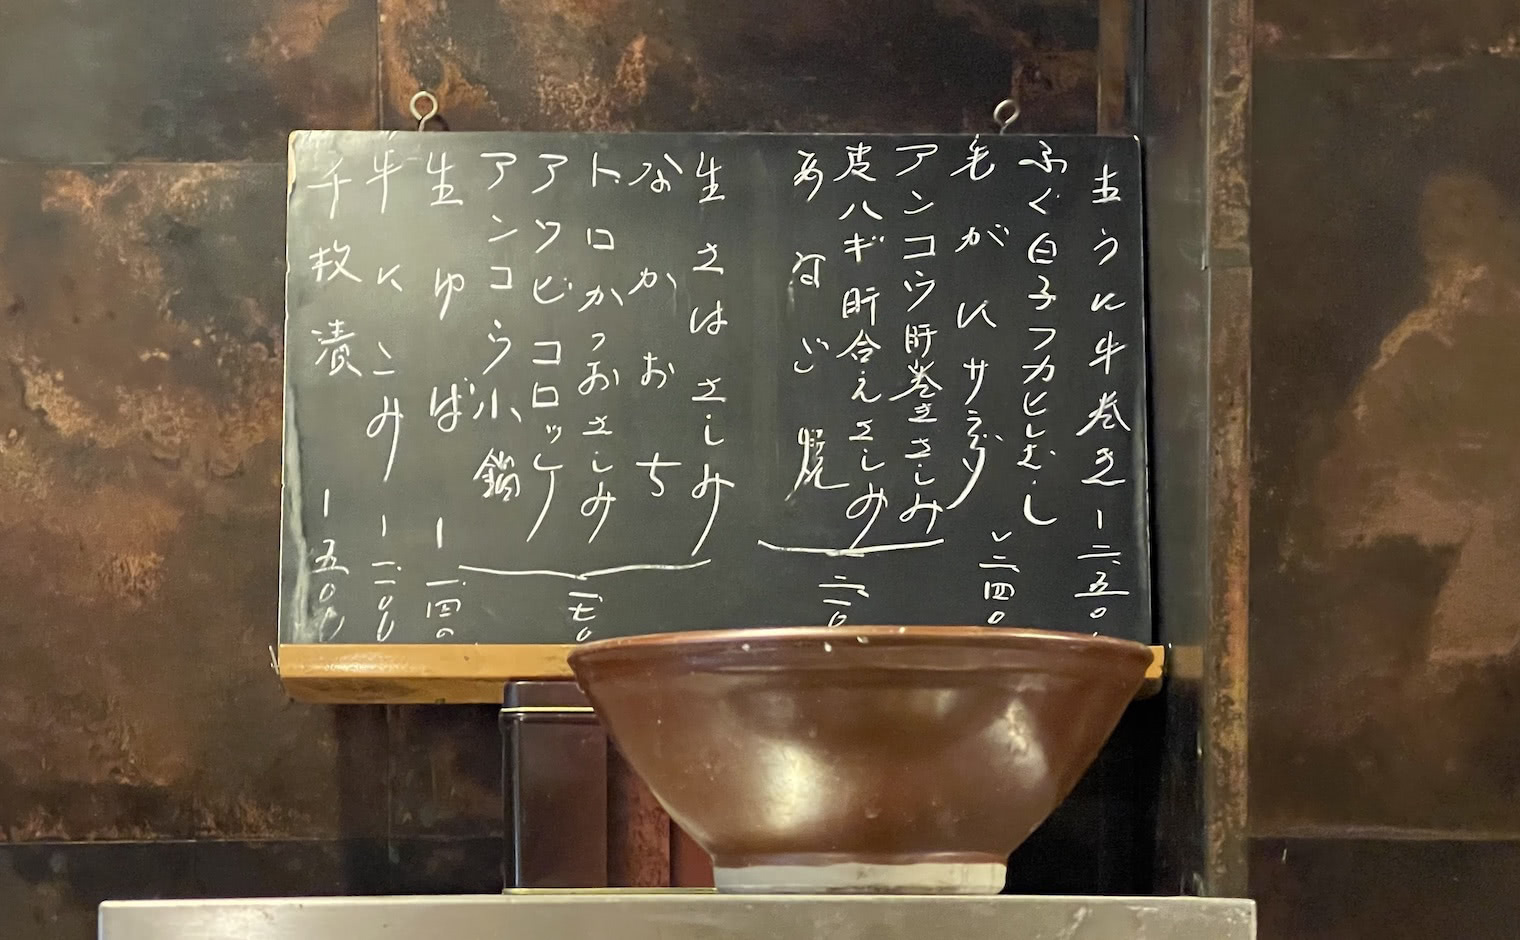 生うに牛巻き 二、五〇
ふぐ白子フカヒレむし
毛がにサラダ
二四〇
アンコウ肝巻きさしみ
皮ハギ肝合えさしみ
あなご焼
二、二〇
生さばさしみ
なかおち
トロかつおさしみ
アワビコロッケ
アンコウ小鍋
一、七〇
生ゆば 一、四〇
牛にこみ 一、二〇〇
千枚漬 五〇〇